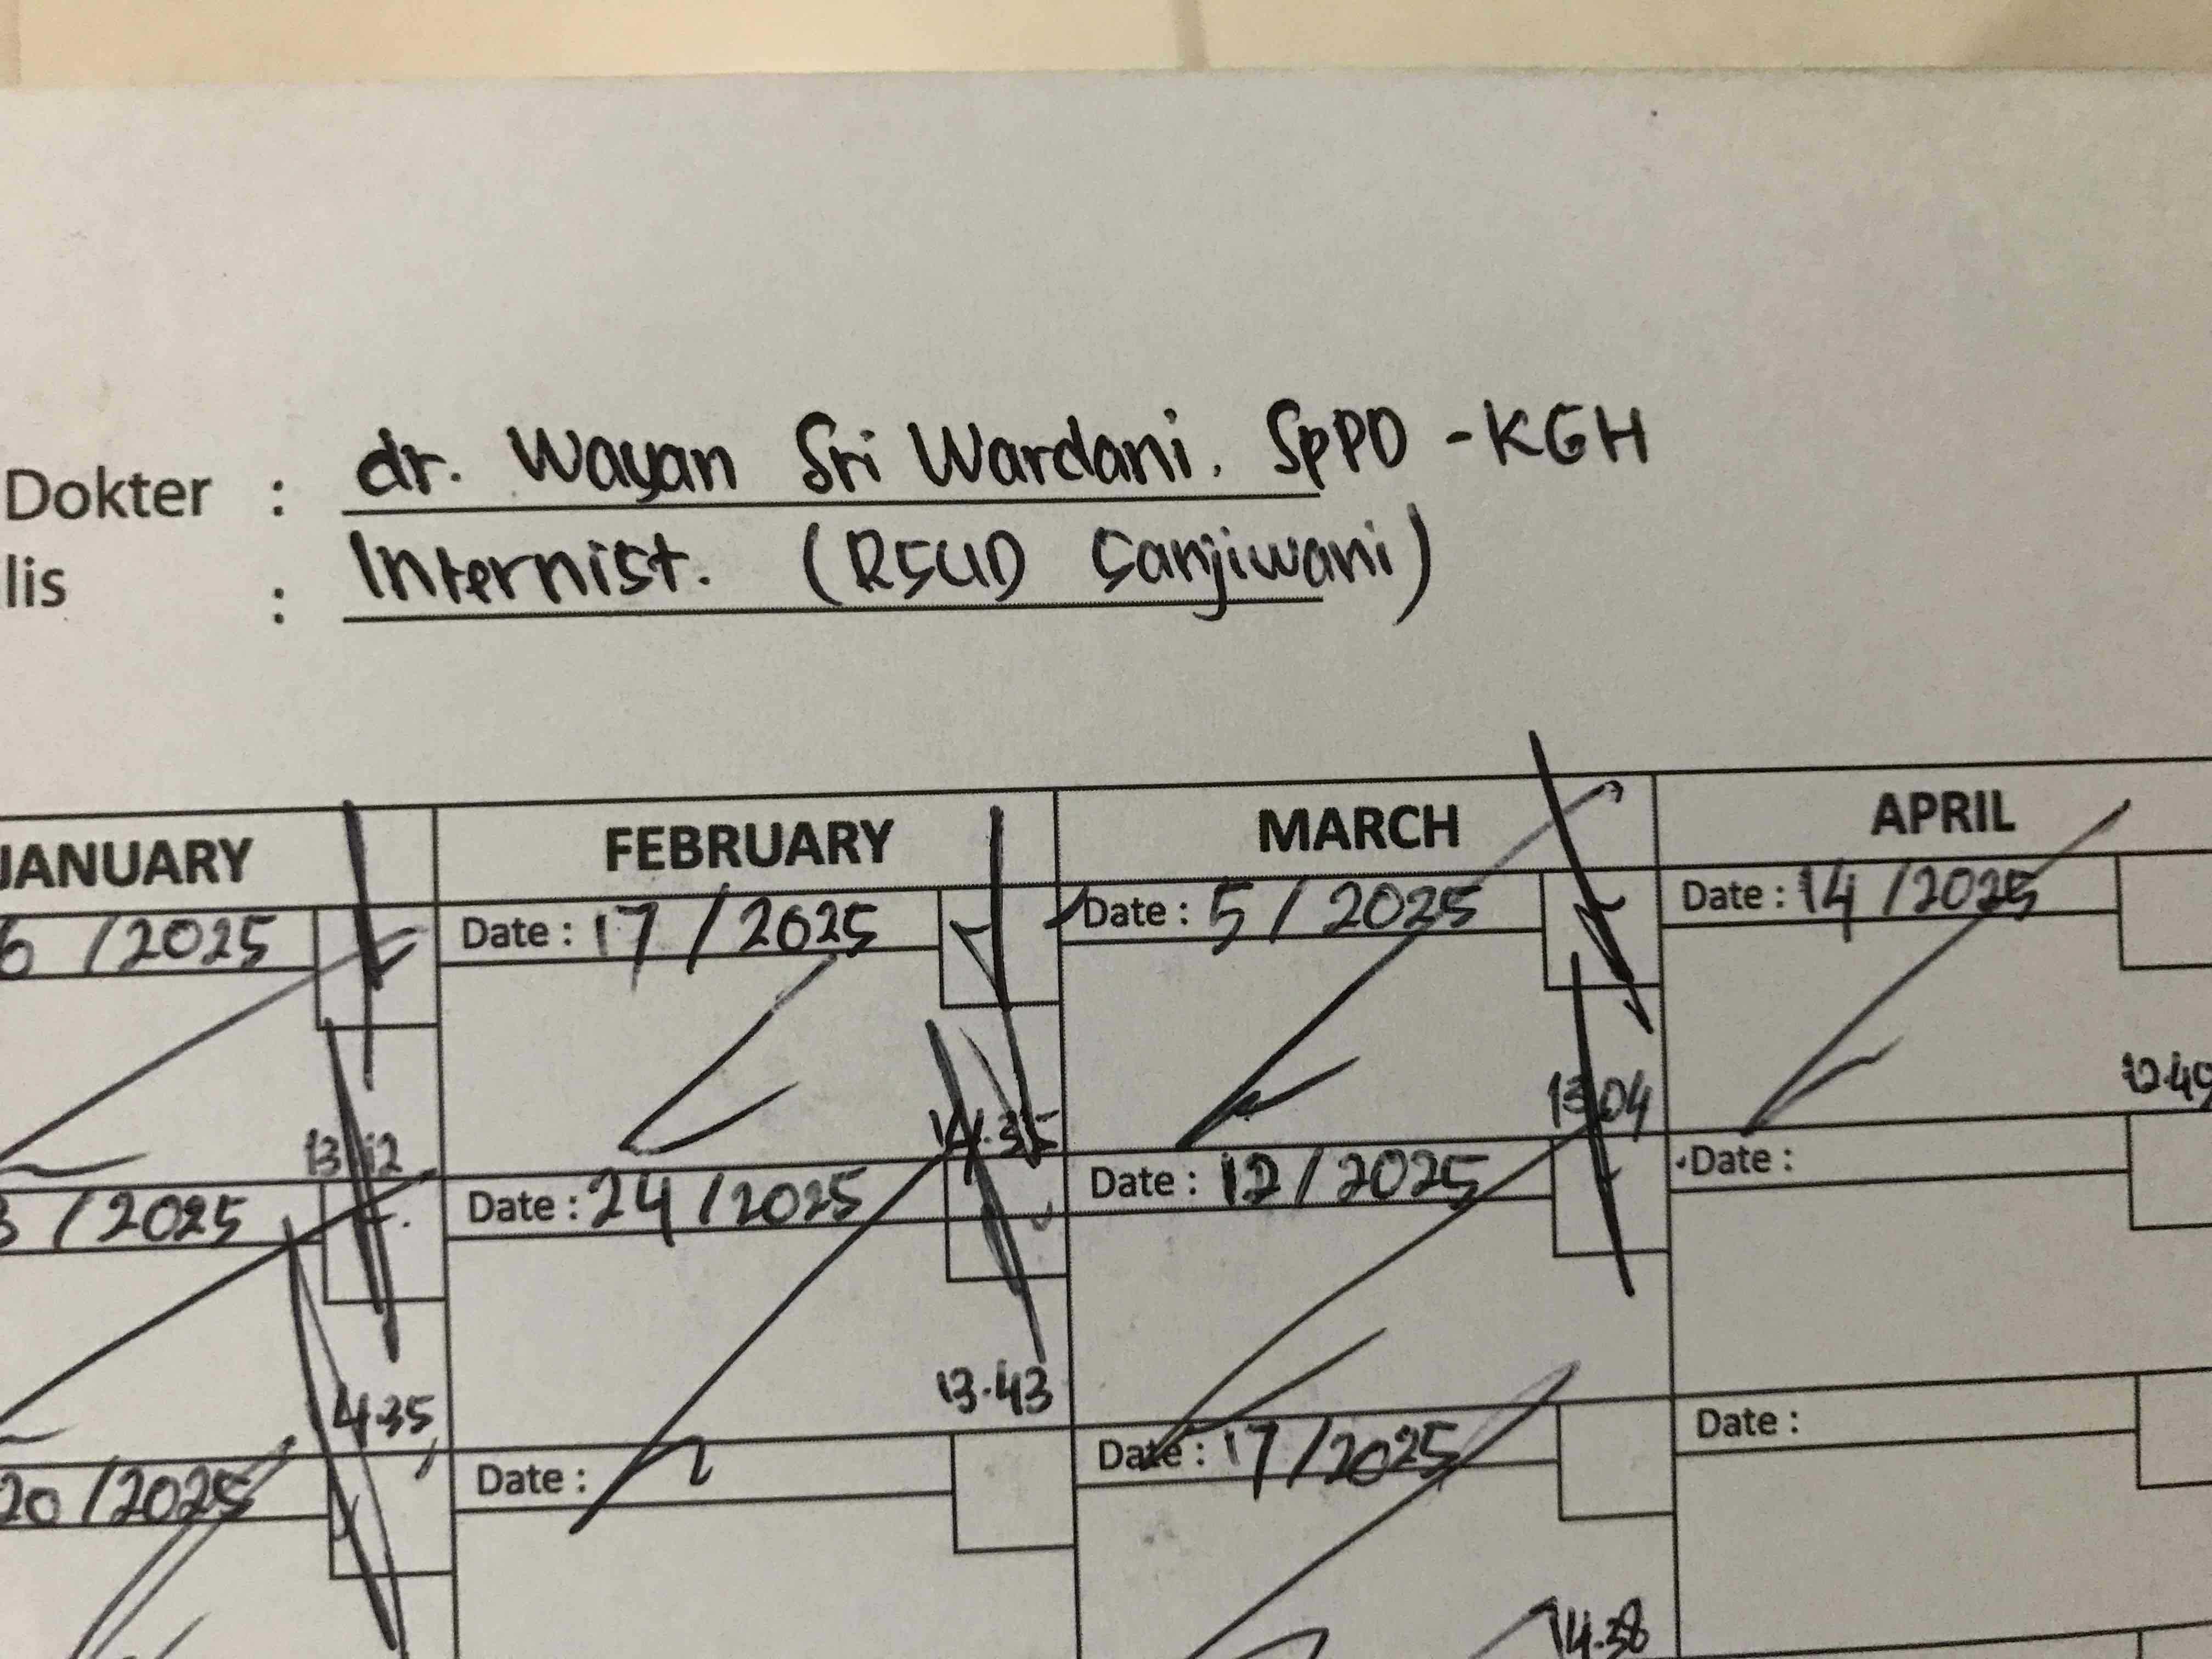 Dokter : dr. Wayan Sri Wardani. SpPD - KGH
lis : Internist. (RSUD Sanjiwani)
JANUARY FEBRUARY MARCH APRIL
6 /2025 Date : 17 / 2025 Date : 5 / 2025 Date : 14 /2025
13.12 14.35 13.04 12.49
3 / 2025 Date : 24 / 2025 Date : 12 / 2025 Date :
14.35 13.43
20 / 2025 Date : Date : 17 / 2025 Date :
14.38